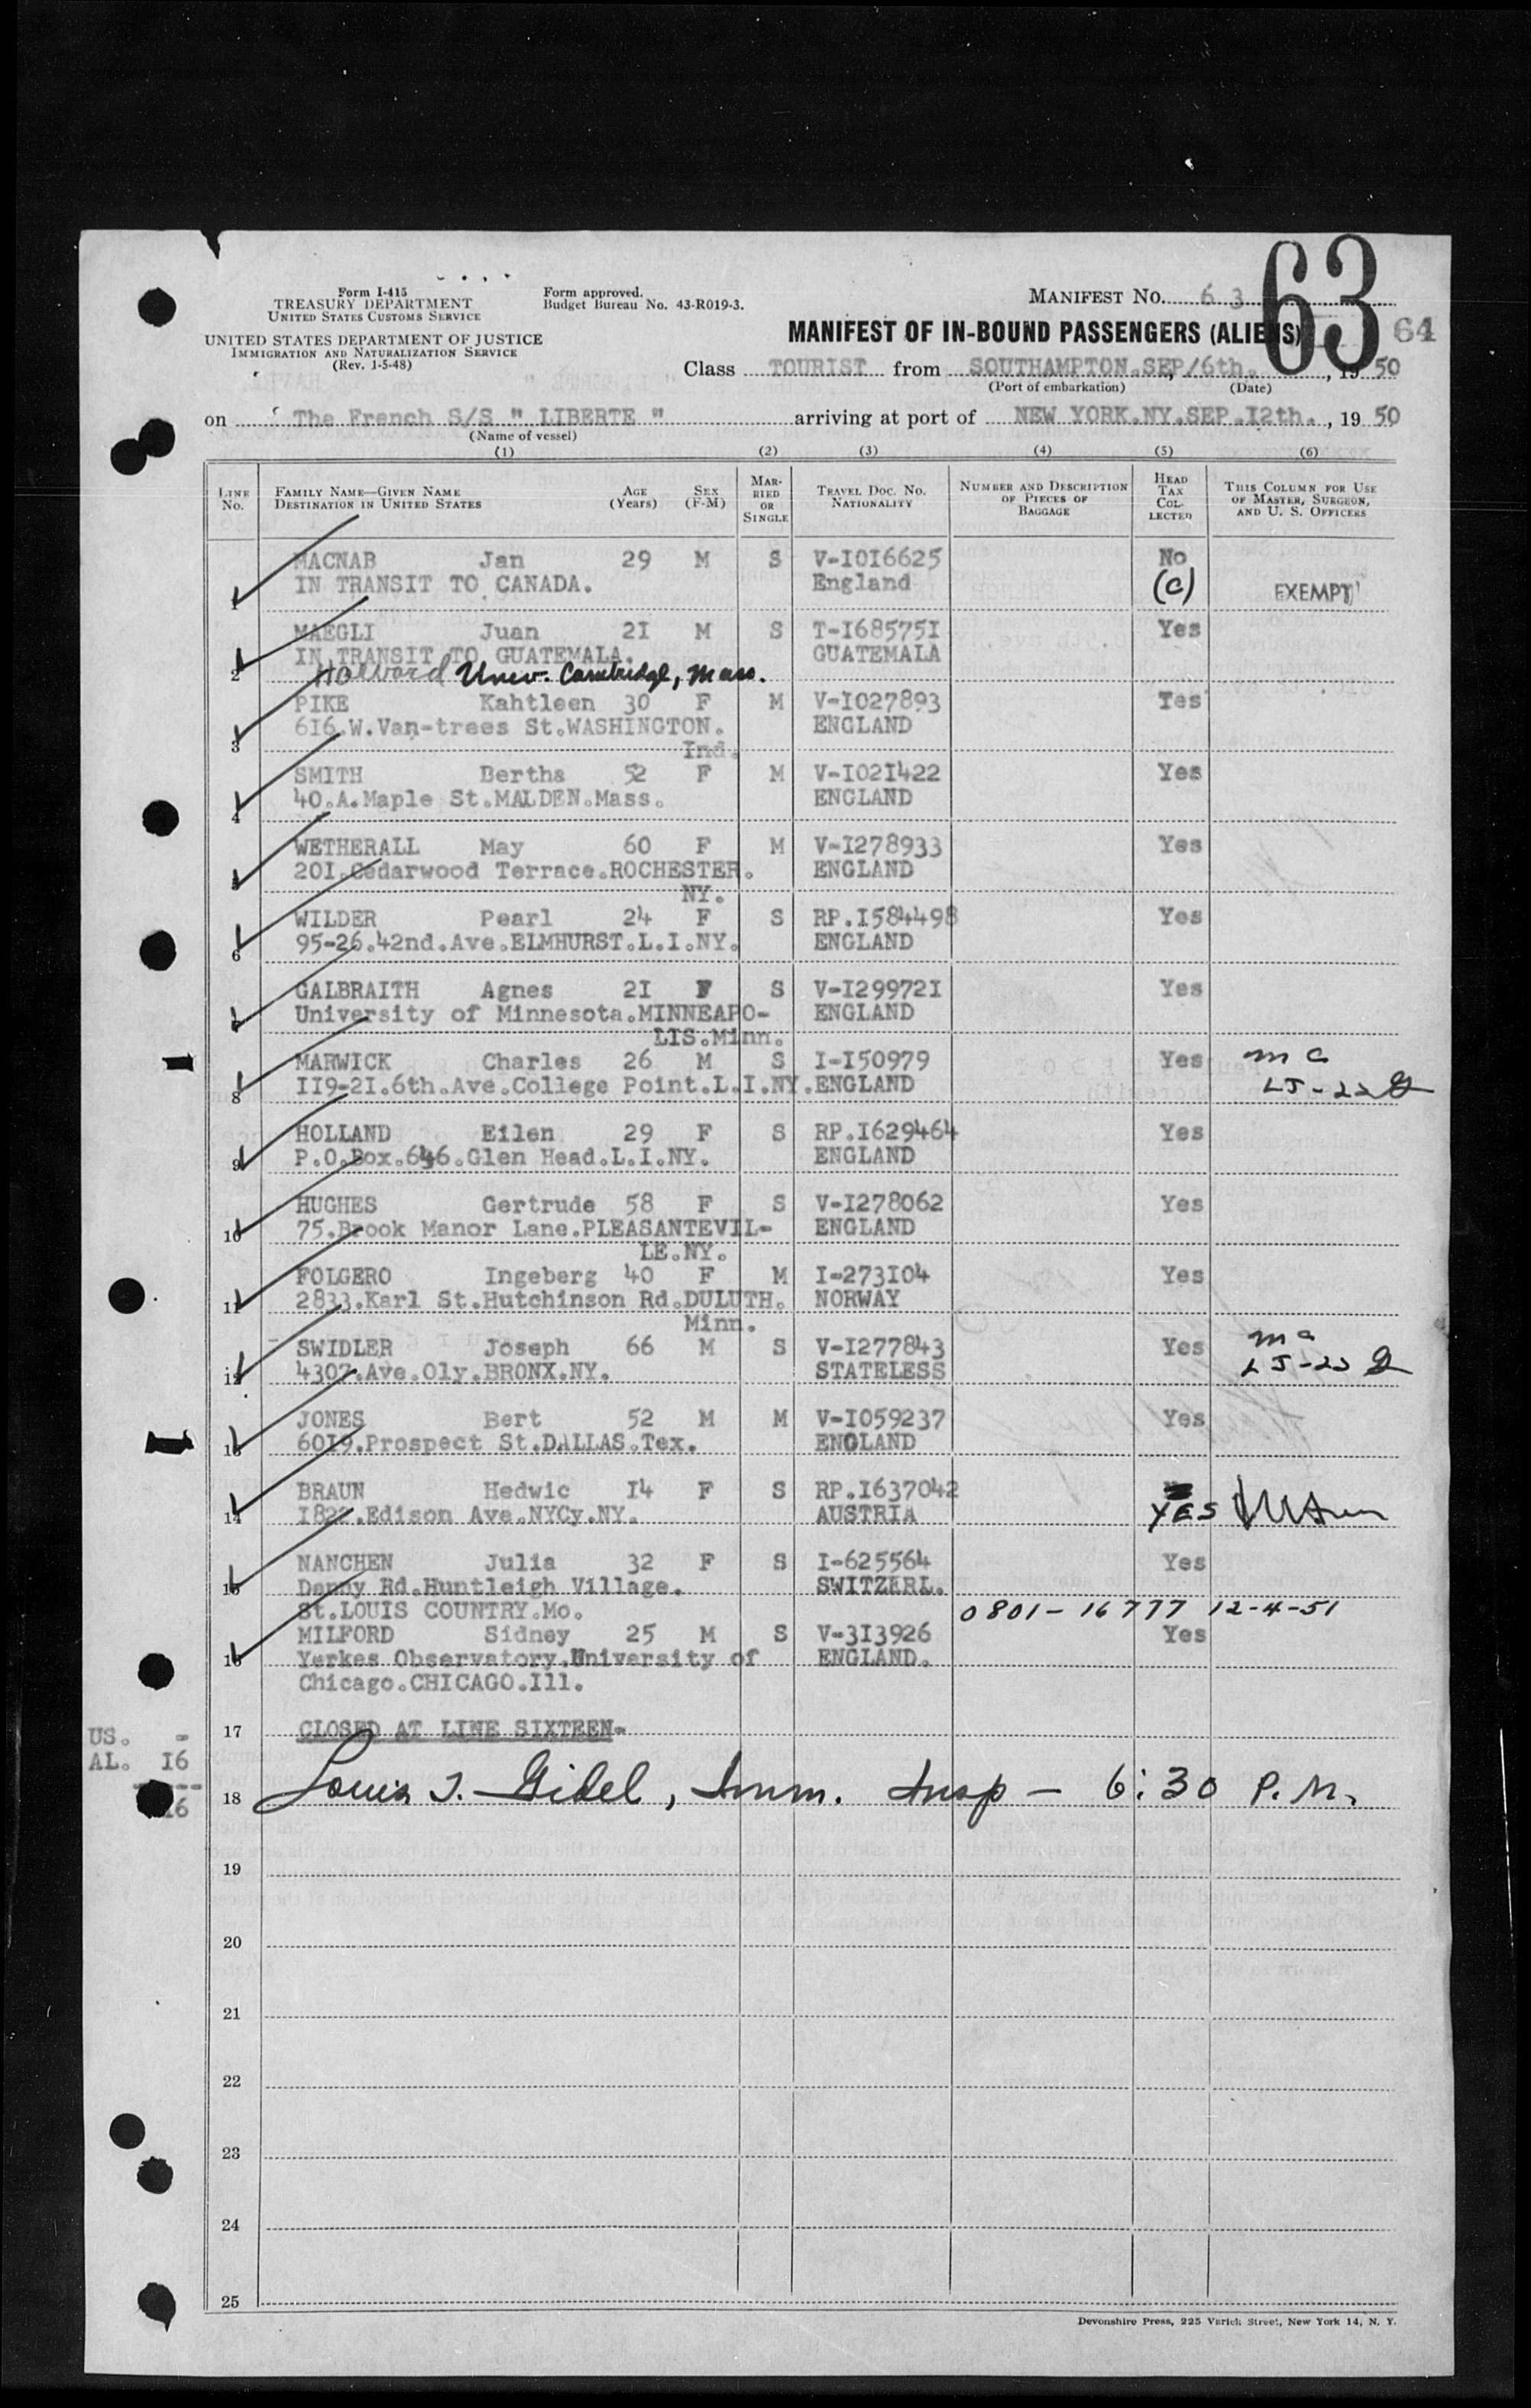 63
Form I-415
TREASURY DEPARTMENT
UNITED STATES CUSTOMS SERVICE
UNITED STATES DEPARTMENT OF JUSTICE
IMMIGRATION AND NATURALIZATION SERVICE
(Rev. 1-5-48)
Form approved.
Budget Bureau No. 43-R019-3.
MANIFEST NO. 63
MANIFEST OF IN-BOUND PASSENGERS (ALIENS) 64
Class TOURIST from SOUTHAMPTON.SEP/6th. , 1950
(Port of embarkation) (Date)
on The French S/S " LIBERTE " arriving at port of NEW YORK.NY.SEP.12th. , 1950
(Name of vessel)
(1) (2) (3) (4) (5) (6)
LINE NO. FAMILY NAME—GIVEN NAME DESTINATION IN UNITED STATES AGE (Years) SEX (F-M) MARRIED OR SINGLE TRAVEL DOC. NO. NATIONALITY NUMBER AND DESCRIPTION OF PIECES OF BAGGAGE HEAD TAX COLLECTED THIS COLUMN FOR USE OF MASTER, SURGEON, AND U. S. OFFICERS
MACNAB Jan 29 M S V-I0I6625 No
1 IN TRANSIT TO CANADA. England (C) EXEMPT
MAEGLI Juan 2I M S T-I68575I Yes
2 IN TRANSIT TO GUATEMALA. GUATEMALA
Univ. Cambridge, Mass.
PIKE Kahtleen 30 F M V-I027893 Yes
3 616.W.Van-trees St.WASHINGTON. ENGLAND
Ind.
SMITH Bertha 52 F M V-I02I422 Yes
4 40.A.Maple St.MALDEN.Mass. ENGLAND
WETHERALL May 60 F M V-I278933 Yes
20I.Cedarwood Terrace.ROCHESTER. ENGLAND
NY.
WILDER Pearl 24 F S RP.I584498 Yes
6 95-26.42nd.Ave.ELMHURST.L.I.NY. ENGLAND
GALBRAITH Agnes 2I F S V-I29972I Yes
University of Minnesota.MINNEAPO- ENGLAND
LIS.Minn.
MARWICK Charles 26 M S I-I50979 Yes
8 II9-2I.6th.Ave.College Point.L.I.NY. ENGLAND
HOLLAND Eilen 29 F S RP.I629464 Yes
9 P.O.Box.646.Glen Head.L.I.NY. ENGLAND
HUGHES Gertrude 58 F S V-I278062 Yes
10 75.Brook Manor Lane.PLEASANTEVIL- ENGLAND
LE.NY.
FOLGERO Ingeberg 40 F M I-273I04 Yes
11 2833.Karl St.Hutchinson Rd.DULUTH. NORWAY
Minn.
SWIDLER Joseph 66 M S V-I277843 Yes
12 4307.Ave.Oly.BRONX.NY. STATELESS
JONES Bert 52 M M V-I059237 Yes
13 6019.Prospect St.DALLAS.Tex. ENGLAND
BRAUN Hedwic I4 F S RP.I637042
14 Edison Ave.NYCy.NY. AUSTRIA YES
NANCHEN Julia 32 F S I-625564 Yes
15 Denny Rd.Huntleigh Village. SWITZERL.
St.LOUIS COUNTRY.Mo. 0801-16777 12-4-51
MILFORD Sidney 25 M S V-3I3926 Yes
16 Yerkes Observatory.University of ENGLAND.
Chicago.CHICAGO.Ill.
US. -
17 CLOSED AT LINE SIXTEEN-
AL. I6
18 Louis J. Gidel, Imm. Insp - 6:30 P.M.
19
20
21
22
23
24
25
Devonshire Press, 225 Varick Street, New York 14, N. Y.